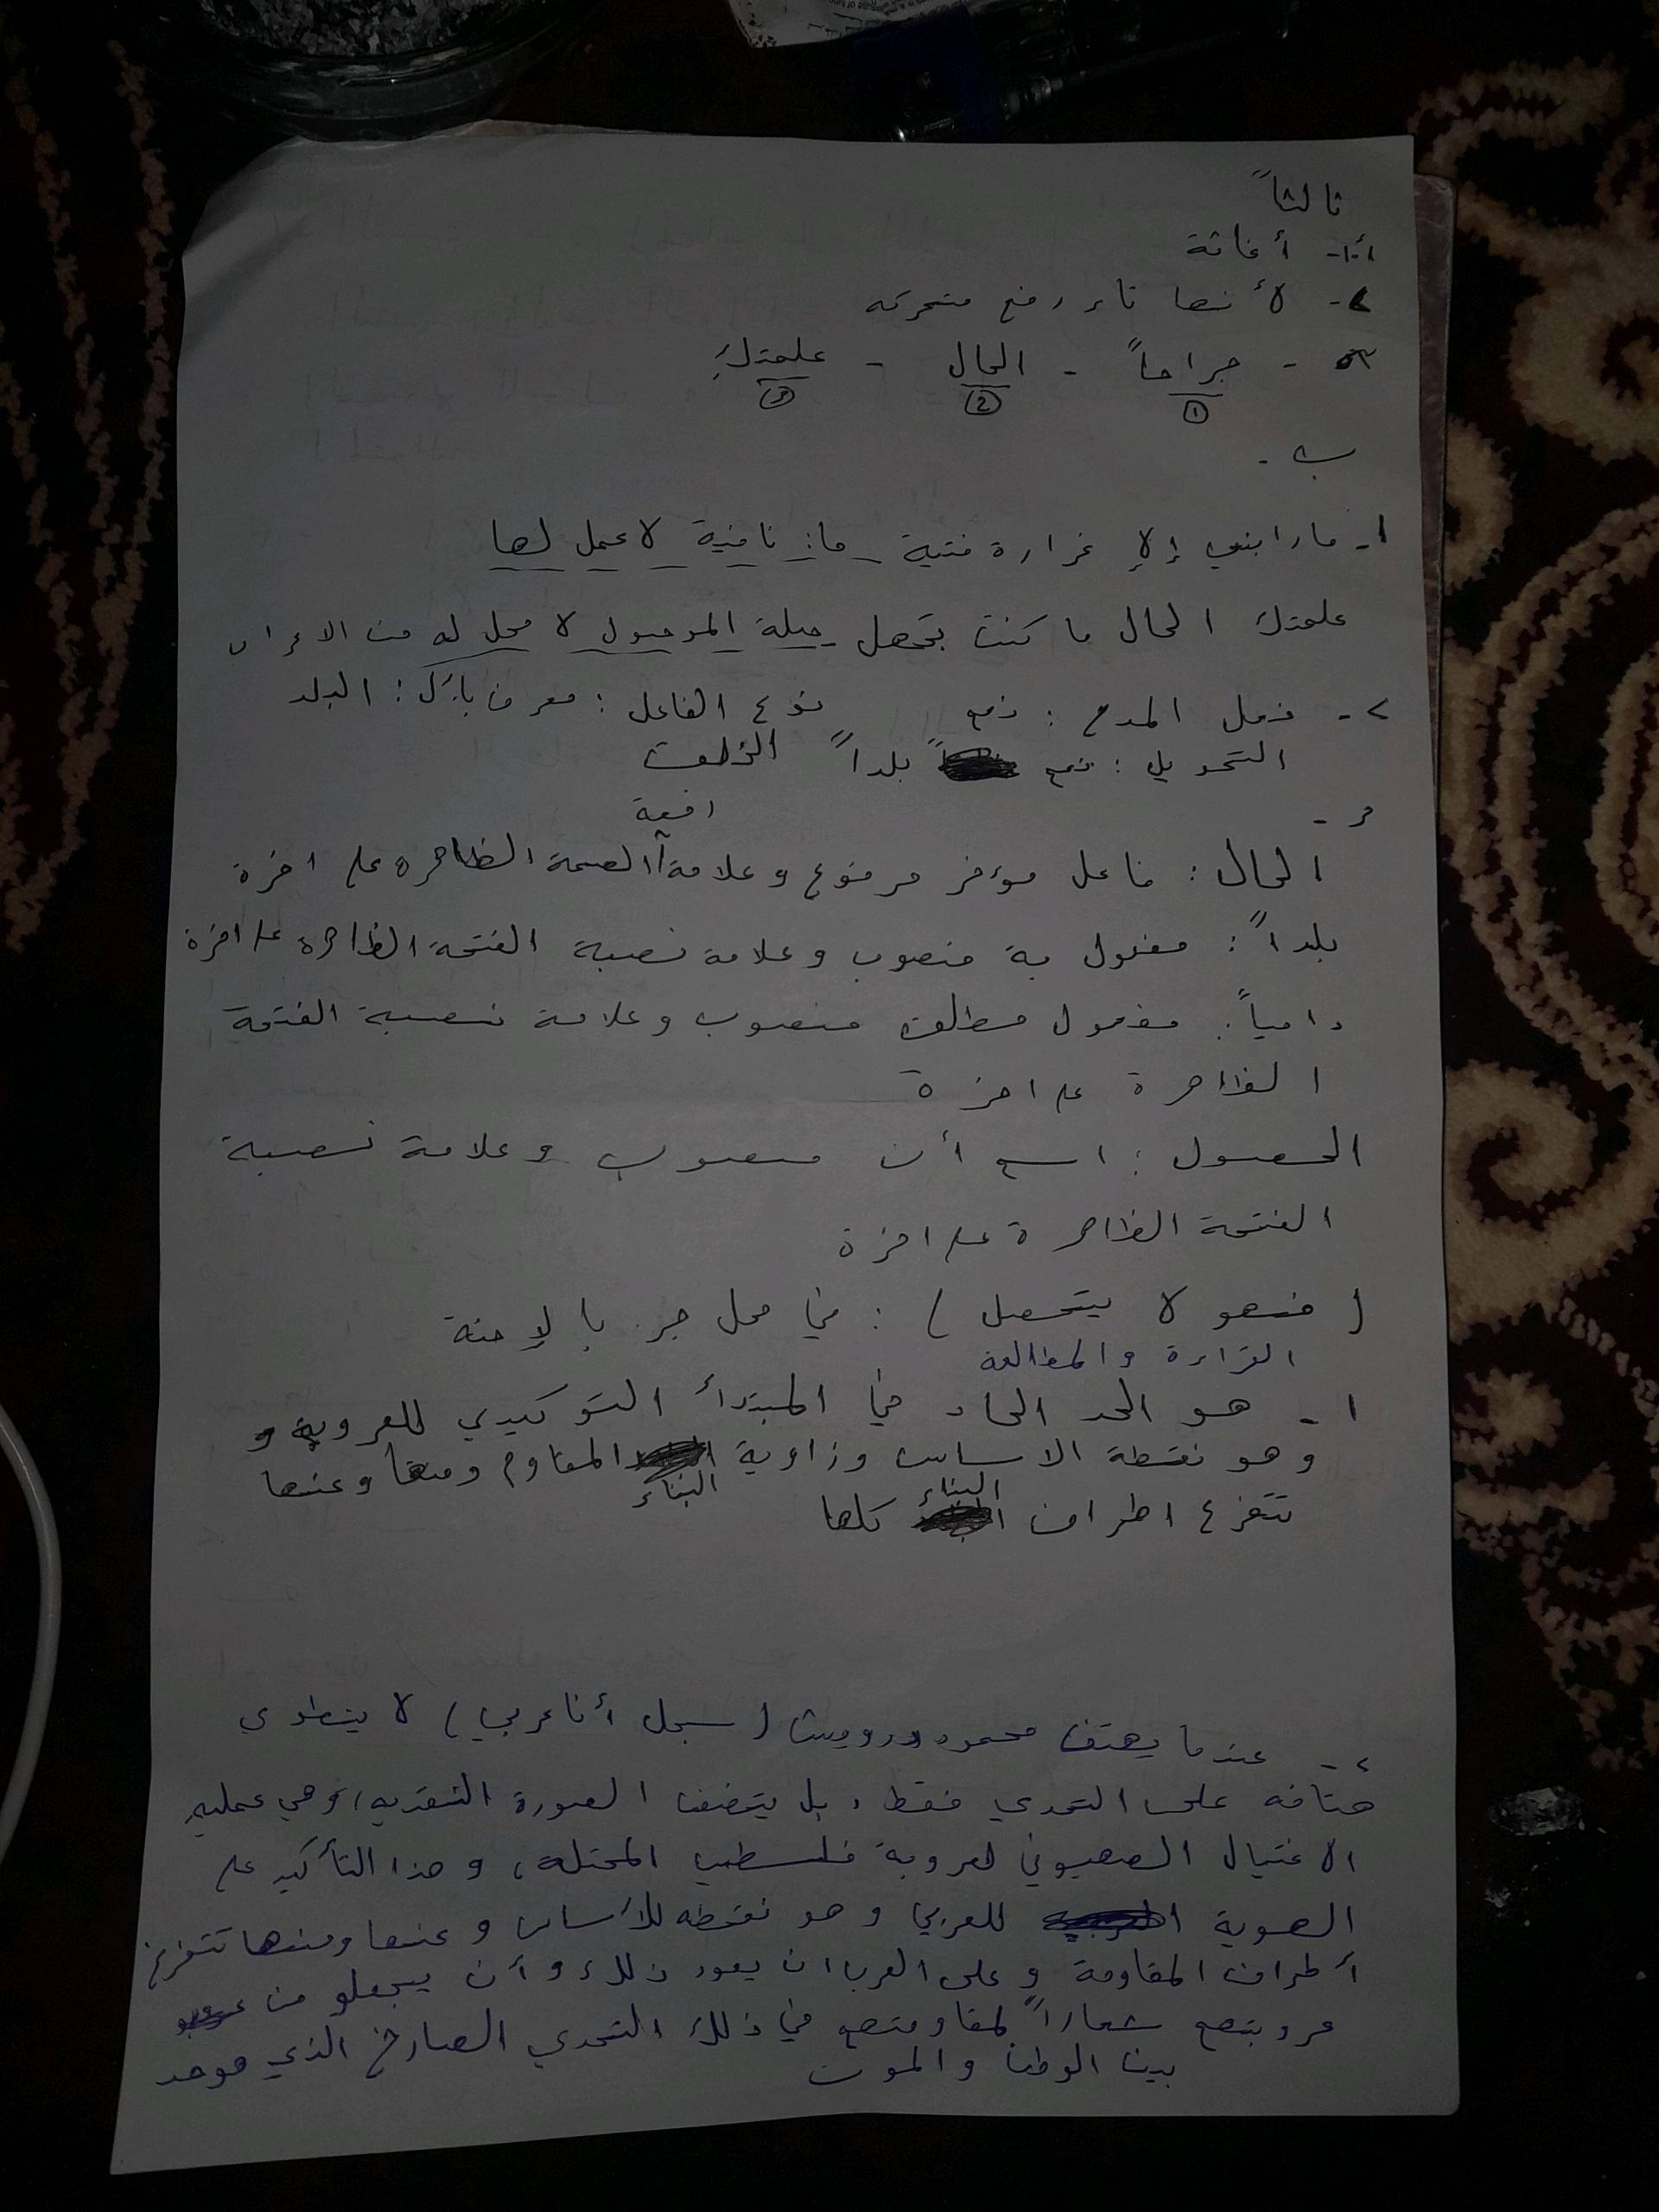 ثالثاً
أ-١- أغاثة
٢- لأنها تاء رفع متحركه
٣- جراحاً - الحال - علمتك
① ② ③
ب -
١- ما رابني إلا غرارة فتية - ما: نافية لا عمل لها
علمتك الحال ما كنت تجهل صلة الموصول لا محل له من الاعراب
٢- فعل المدح: نعم نوع الفاعل: معرف بأل: البلد
التحويل: نعم بلداً
٣-
الحال: فاعل مؤخر مرفوع وعلامة رفعة الضمة الظاهره على اخرة
بلداً: مفعول بة منصوب وعلامة نصبة الفتحة الظاهرة على اخرة
دامياً: مفعول مطلق منصوب وعلامة نصبة الفتحة
الظاهرة على اخرة
الحصول: اسم أن منصوب وعلامة نصبة
الفتحة الظاهرة على اخرة
( فهو لا يتحصل ) : في محل جر بالإضافة
القراءة والمطالعة
١- هو الحد الحاد في المبتدأ التوكيدي للعروبة و
وهو نقطة الاساس وزاوية البناء المقاوم ومنها وعنها
تتفرع اطراف البناء كلها
٢- عندما يهتف محمود درويش (سجل أنا عربي) لا ينطوي
هتافه على التحدي فقط، بل يتضمن الصورة النقديه، وهي عمليه
الاغتيال الصهيوني لعروبة فلسطين المحتلة، وهذا التأكيد على
الهوية للعربي وهو نقطه للأساس وعنها ومنها تتفرع
أطراف المقاومة وعلى العرب ان يعود ذلك وأن يجعلو من
عروبتهم شعاراً لمقاومتهم في ذلك التحدي الصارخ الذي هو حد
بين الوطن والموت